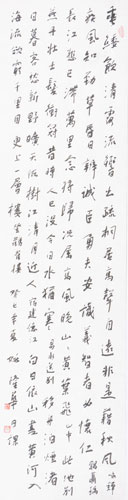 垂緌飲清露流響出疏桐居高聲自遠非是藉秋風
疾風知勁草昏日辨誠臣勇夫安識義智者必懷仁
長江悲已滯萬里念將歸況屬高風晚山山黃葉飛山中此地別
燕丹壯士髮衝冠昔時人已沒今日水猶寒移舟泊煙渚
日暮客愁新野曠天低樹江清月近人宿建德江白日依山盡黃河入
海流欲窮千里目更上一層樓登鸛雀樓